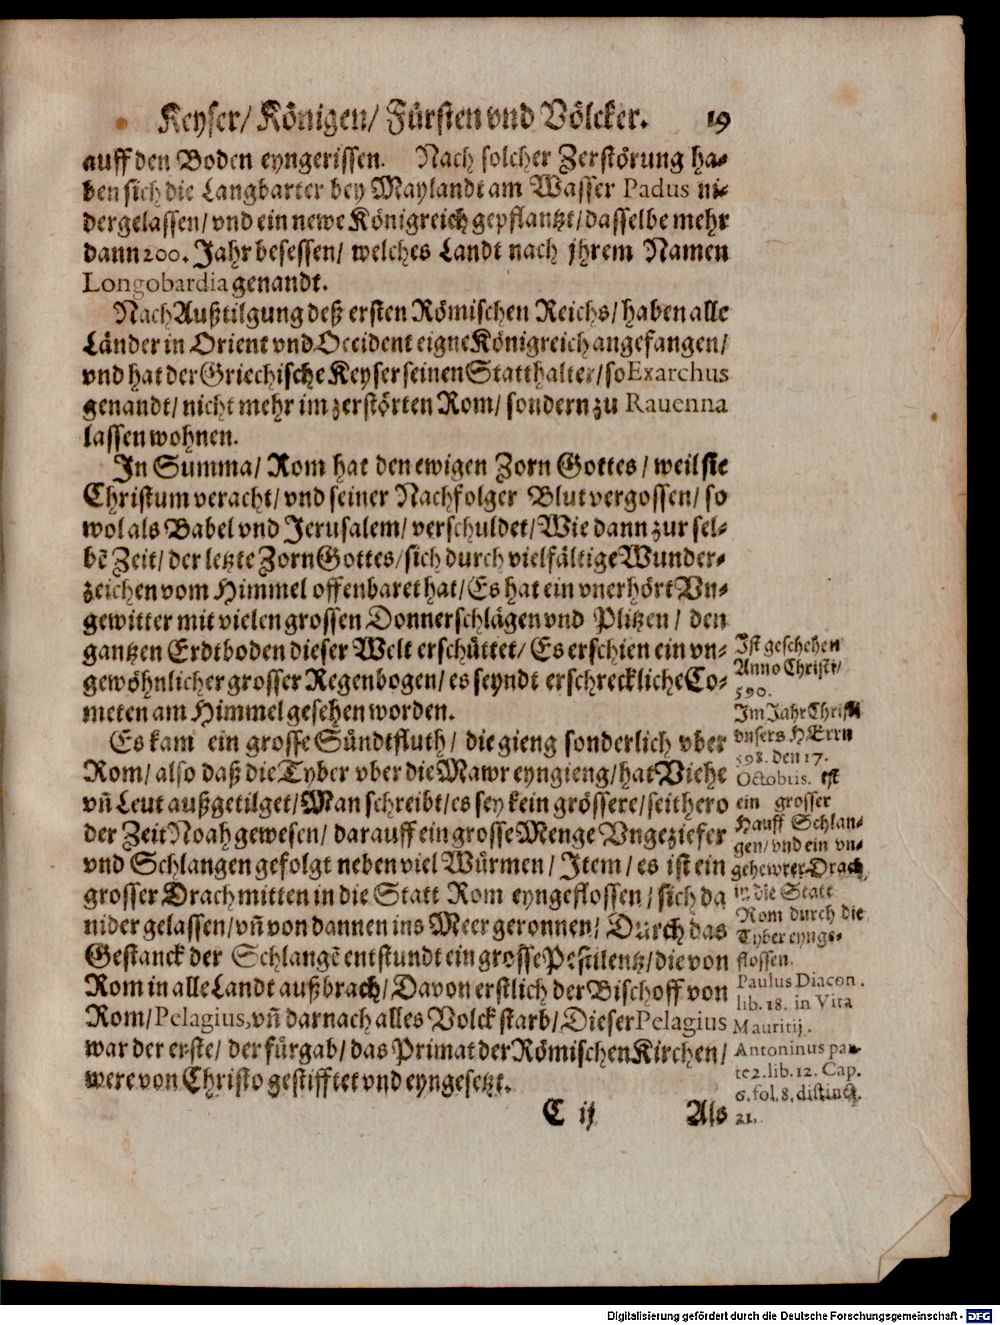 Keyser/ Königen/ Fürsten vnd Völcker. 19
auff den Boden eyngerissen. Nach solcher Zerstörung ha-
ben sich die Langbarter bey Maylandt am Wasser Padus ni-
dergelassen/ vnd ein newe Königreich gepflantzt/ dasselbe mehr
dann 200. Jahr besessen/ welches Landt nach jhrem Namen
Longobardia genandt.
Nach Außtilgung deß ersten Römischen Reichs/ haben alle
Länder in Orient vnd Occident eigne Königreich angefangen/
vnd hat der Griechische Keyser seinen Statthalter/ so Exarchus
genandt/ nicht mehr im zerstörten Rom/ sondern zu Rauenna
lassen wohnen.
In Summa/ Rom hat den ewigen Zorn Gottes/ weil sie
Christum veracht/ vnd seiner Nachfolger Blut vergossen/ so
wol als Babel vnd Jerusalem/ verschuldet/ Wie dann zur sel-
bẽ Zeit/ der letzte Zorn Gottes/ sich durch vielfältige Wunder-
zeichen vom Himmel offenbaret hat/ Es hat ein vnerhört Vn-
gewitter mit vielen grossen Donnerschlägen vnd Plitzen/ den
gantzen Erdtboden dieser Welt erschüttet/ Es erschien ein vn-
gewöhnlicher grosser Regenbogen/ es seyndt erschreckliche Co-
meten am Himmel gesehen worden.
Es kam ein grosse Sündtfluth/ die gieng sonderlich vber
Rom/ also daß die Tyber vber die Mawr eyngieng/ hat Viehe
vñ Leut außgetilget/ Man schreibt/ es sey kein grössere/ seithero
der Zeit Noah gewesen/ darauff ein grosse Menge Vngeziefer
vnd Schlangen gefolgt neben viel Würmen/ Item/ es ist ein
grosser Drach mitten in die Statt Rom eyngeflossen/ sich da
nider gelassen/ vñ von dannen ins Meer geronnen/ Durch das
Gestanck der Schlangẽ entstundt ein grosse Pestilentz/ die von
Rom in alle Landt außbrach/ Davon erstlich der Bischoff von
Rom/ Pelagius, vñ darnach alles Volck starb/ Dieser Pelagius
war der erste/ der fürgab/ das Primat der Römischen Kirchen/
were von Christo gestifftet vnd eyngesetzt.
C ij Als
Ist geschehen
Anno Christi/
590.
Im Jahr Christi
vnsers HErrn
598. den 17.
Octobris. ist
ein grosser
Hauff Schlan-
gen/ vnd ein vn-
gehewrer Drach
in die Statt
Rom durch die
Tyber eynge-
flossen.
Paulus Diacon.
lib. 18. in Vita
Mauritij.
Antoninus par-
te 2. lib. 12. Cap.
6. fol. 8. distinct.
21.
Digitalisierung gefördert durch die Deutsche Forschungsgemeinschaft - DFG